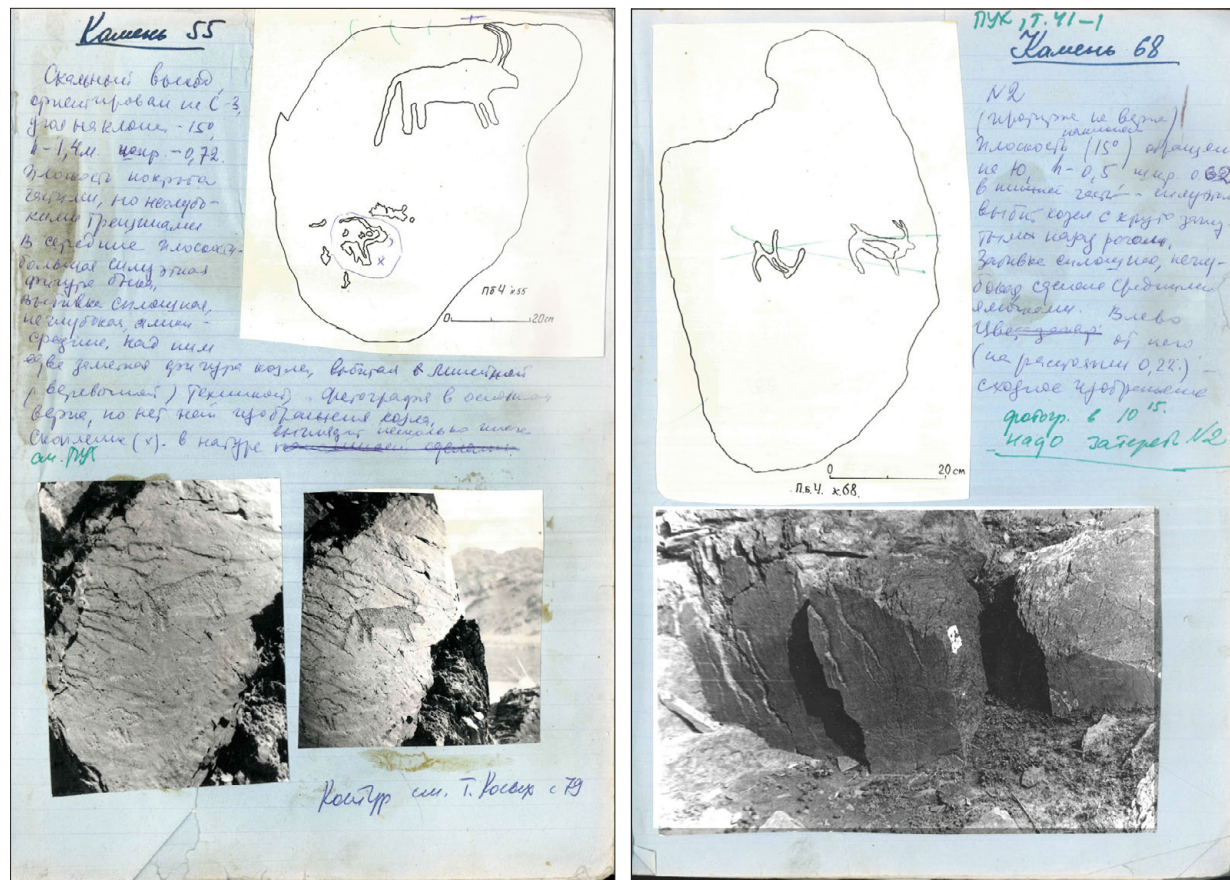 Камень 55
Скальный выход,
ориентирован на С-З,
угол наклона - 15°,
h - 1,4 м. шир. - 0,72.
Плоскость покрыта
частыми, но неглубо-
кими трещинами
В середине плоскости -
большая силуэтная
фигура быка,
выбивка сплошная,
неглубокая, ямки -
средние, над ним
едве заметная фигура козла, выбитая в линейной
(веревочной) технике. Фотография в основном
верна, но нет на ней изображения козла,
Скопление (x). в натуре выглядит несколько иначе
см. ПУХ
П.Б.Ч к 55
0 20 см
Контур см. Т. Косых с 79
ПУХ, Т. 41-1
Камень 68
N2
(протирка не верна)
Плоскость наклонная (15°) обращен
на Ю, h - 0,5 шир. 0.62
в нижней части - силуэтно
выбит козел с круто загну
тыми назад рогами,
Забивка сплошная, неглу-
бокая сделана средними
ямочками. Влево
от него
(на расстоянии 0,22)
сходное изображение
фотогр. в 10 15.
надо затереть N2
0 20 см
П.Б.Ч. к 68.